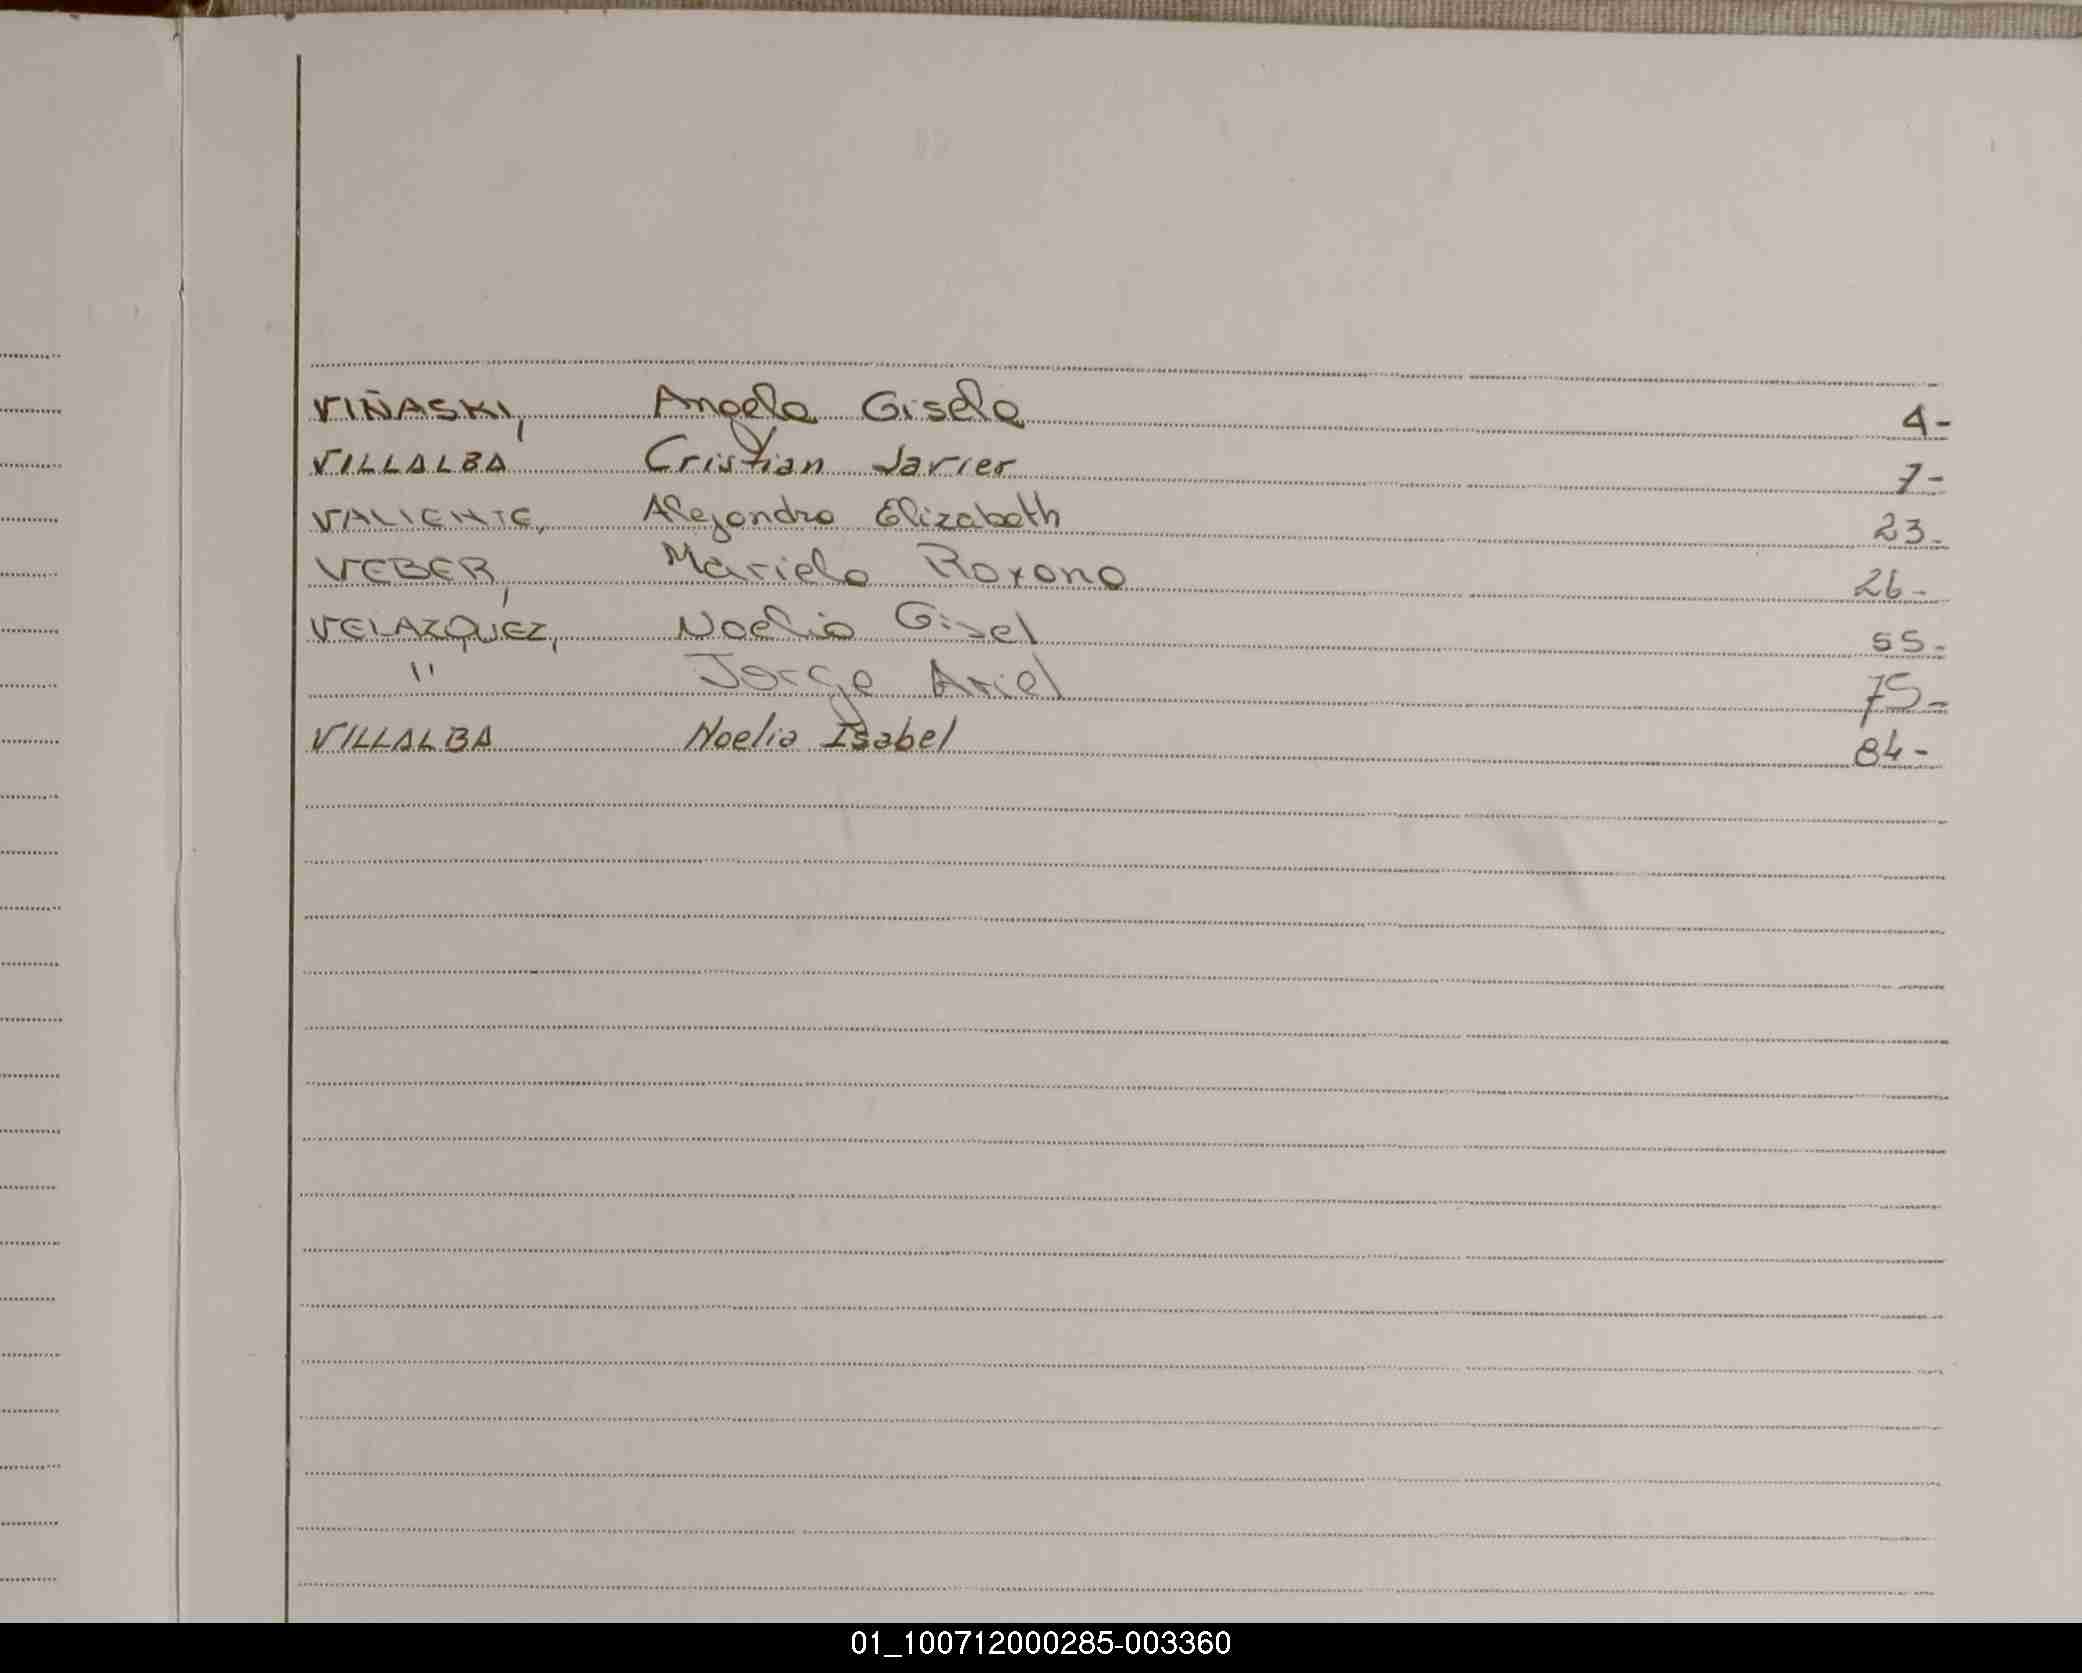 VIÑASKI, Angela Gisela 4-
VILLALBA Cristian Javier 7-
VALIENTE, Alejandra Elizabeth 23-
VEBER, Mariela Roxana 26-
VELAZQUEZ, Noelia Gisel 55-
" Jorge Ariel 75-
VILLALBA Noelia Isabel 84-
01_100712000285-003360